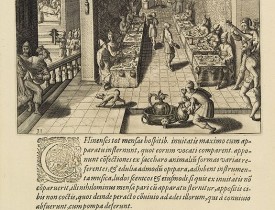 Chinenses tot mensas hospitib. inuitatis maximo cum ap-
paratu insternunt, quot eorum vocati comparent. appo-
nunt cōfectiones ex saccharo animaliū formas varias re-
ferentes, & edulia adinodū appara, adhibent instrumen-
ta musica,
aparuerit, illi nihilominus mensa pars cū apparatu sternitur, appositis ci-
bis non coctis, quos deinde peracto cōniuio ad ædes illorum, qui a conuiuio
abfuerunt, cum pompa deferunt.